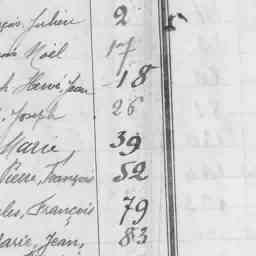 Julien 2
Noël 17
Hervé, Jean 18
Joseph 26
Marie, 39
Pierre, François 52
François 79
Marie, Jean, 83